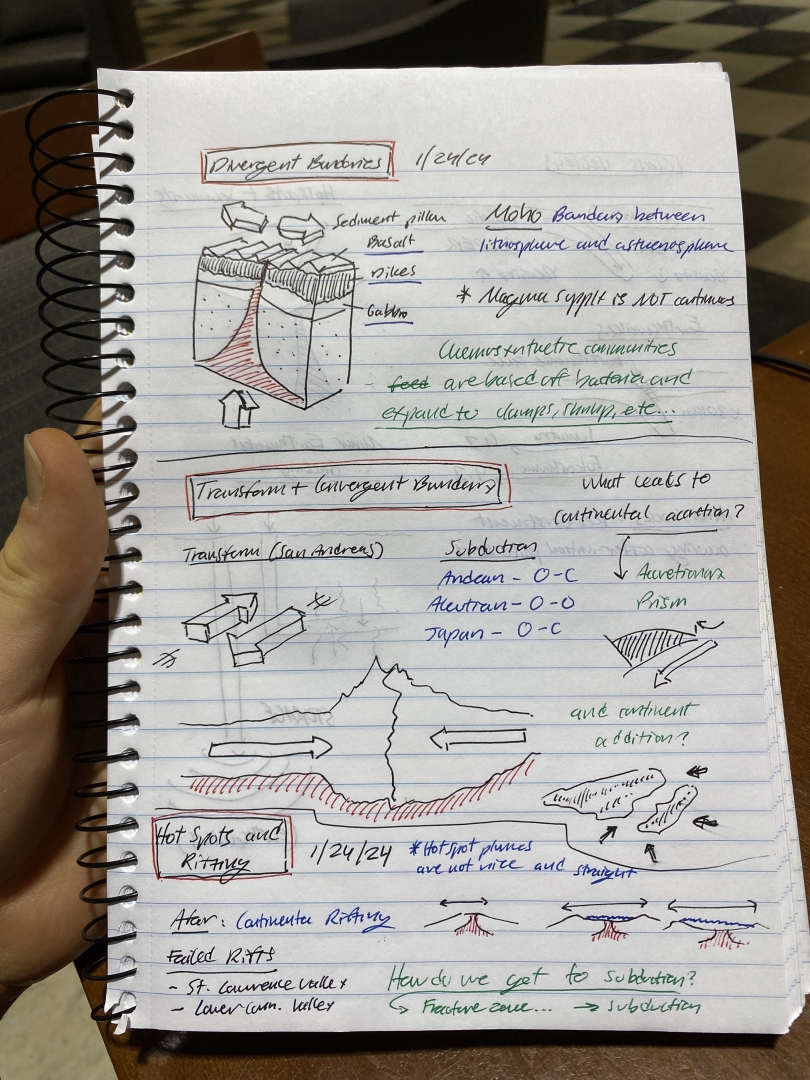 Divergent Bundaries 1/24/24
Sediment pillow
Basalt
Dikes
Gabbro
Moho Bandary between
lithosphere and asthenosphere
* Magma Supply is NOT continuous
Chemosynthetic communities
- feed are based off bacteria and
expand to clamps, shrimp, etc...
Transform + Convergent Bundary
What leads to
continental accretion?
Transform (San Andreas)
Subduction
Andean - O-C
Aleutian - O-O
Japan - O-C
Accretionary
Prism
and continent
addition?
Hot Spots and
Rifting
1/24/24
* Hot spot plumes
are not nice and straight
Afar: Continental Rifting
Failed Rifts
- St. Lawrence Valley
- Lower Conn. Valley
How do we get to subduction?
Fracture zone... → subduction